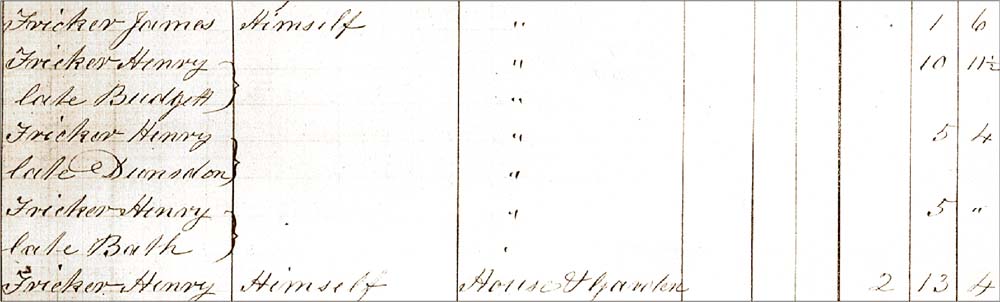 Fricker James Himself " 1 6
Fricker Henry " 10 11½
late Budgett "
Fricker Henry " 5 4
late Dunsdon "
Fricker Henry " 5 "
late Bath "
Fricker Henry Himself House & Garden 2 13 4